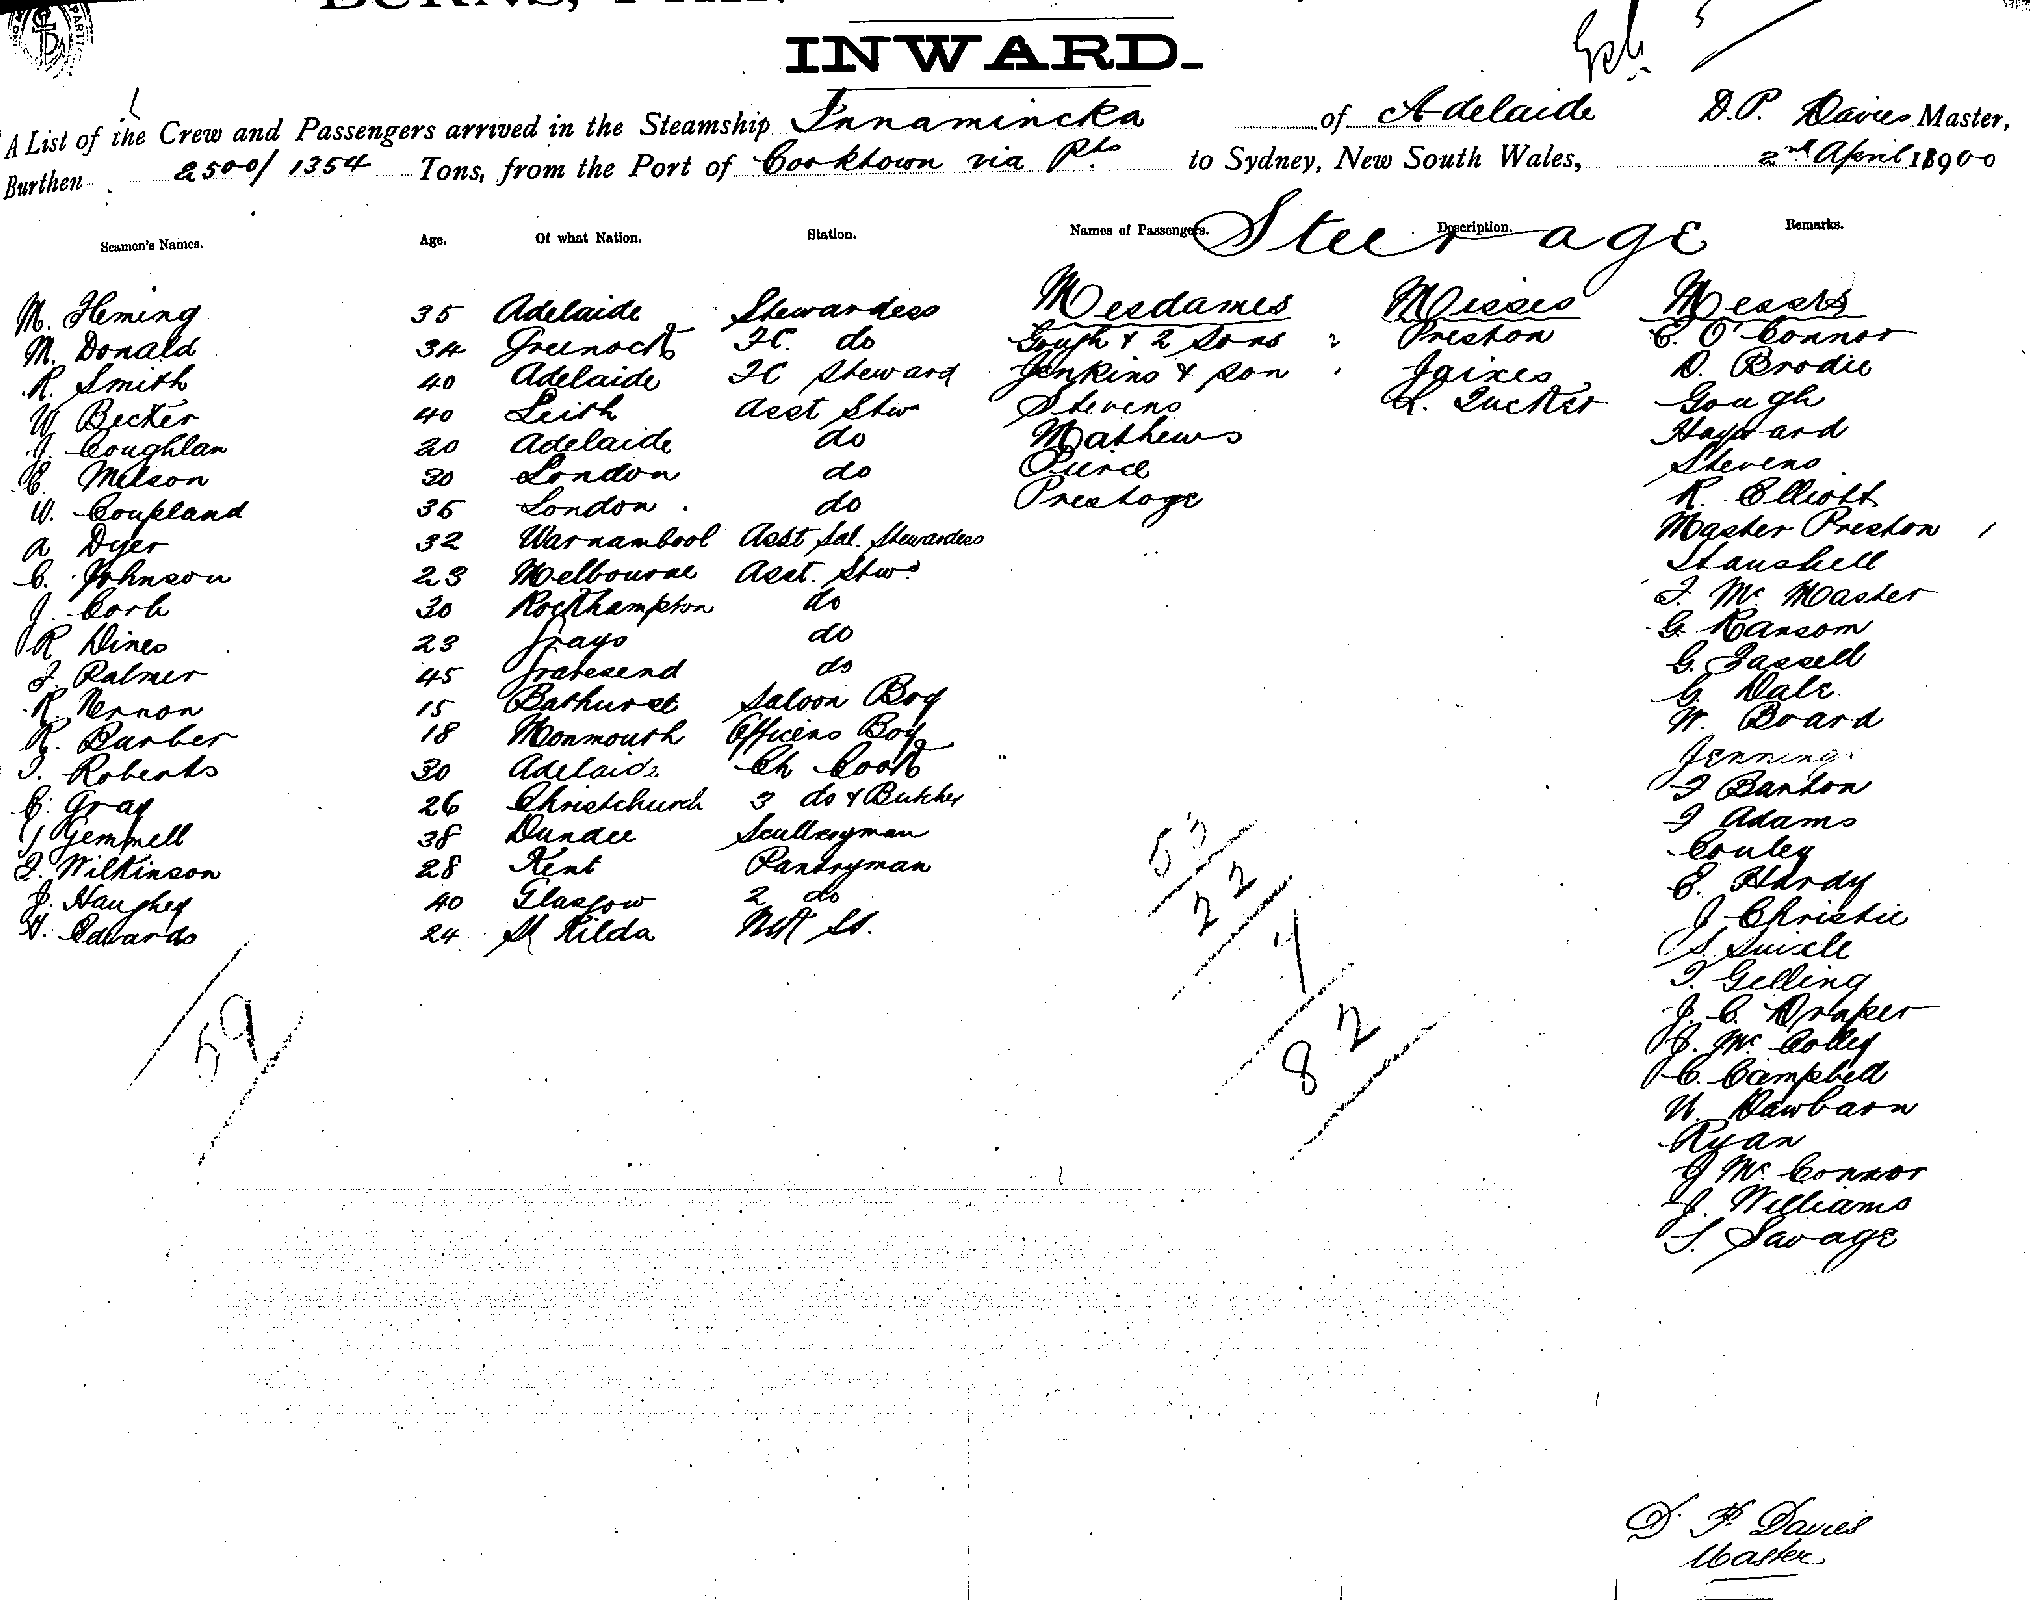 INWARD.
A List of the Crew and Passengers arrived in the Steamship Innamincka of Adelaide D.P. Davies Master,
Burthen 2500/1354 Tons, from the Port of Cooktown via Pts to Sydney, New South Wales, 2nd April 18900
Seamen's Names. Age. Of what Nation. Station. Names of Passengers. Description. Remarks.
Steerage
M. Fleming 35 Adelaide Stewardess Mesdames Misses Messrs
M. Donald 34 Greenock F.C. do Gough & 2 Sons Preston C. O'Connor
R. Smith 40 Adelaide FC Steward Jenkins & Son D. Brodie
W Becker 40 Leith Asst Stw Stevens L. Tucker Gough
J. Coughlan 20 Adelaide do Mathews Hayward
E. Melson 30 London do Stevens
W. Coupland 36 London do Prestoge R. Elliott
A Dyer 32 Warnambool Asst Sal. Stewardess Master Preston
C. Johnson 23 Melbourne Asst. Stwd
J. Corb 30 Rockhampton do T. Mc Master
R Dines 23 Grays do G. Ransom
F. Palmer 45 Gravesend do G. Fassell
R Vernon 15 Bathurst Saloon Boy G. Dale
R. Barber 18 Monmouth Officers Boy W. Board
T. Roberts 30 Adelaide Ch Cook Jennings
C. Gray 26 Christchurch 3 do & Butcher F Banton
J Gemmell 38 Dundee Sculleryman F Adams
T. Wilkinson 28 Kent Pantryman Conley
J. Haughey 40 Glasgow 2 do E. Hardy
Edwards 24 St Kilda J Christie
59
53
22
7
82
T. Gelling
J. C. Draper
J. Mc Colley
C. Campbell
W. Dawbarn
Ryan
J Mc Connor
J. Williams
S. Savage
D. P. Davies
Master